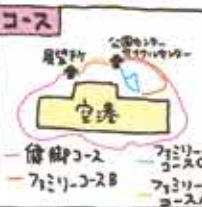 コース
展望所
公園センター
サイクルセンター
空港
健脚コース
ファミリーコースB
ファミリー
コースC
ファミリー
コースA